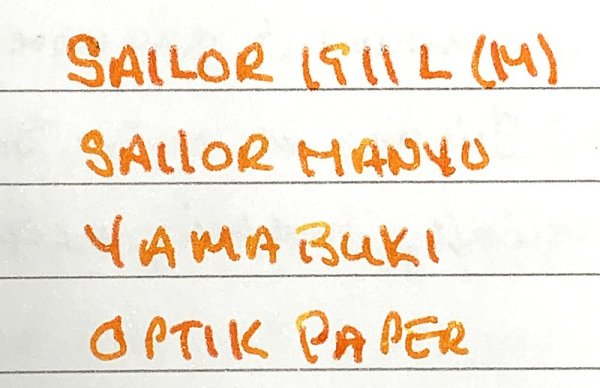 SAILOR 1911L (M)
SAILOR MANYO
YAMABUKI
OPTIK PAPER